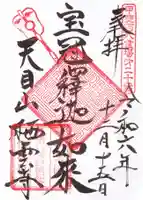 奉拝
令和六年
十一月十五日
宝冠釋迦如來
天目山栖雲寺